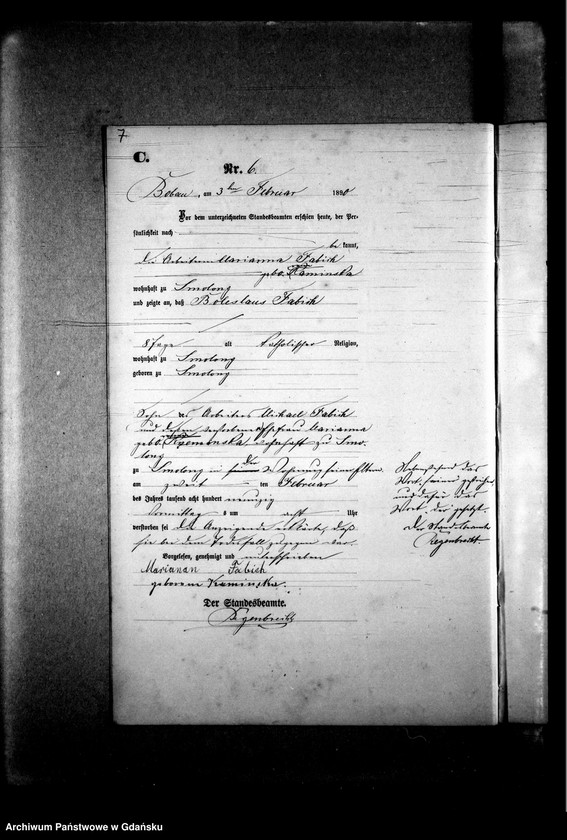 7
C.
Nr. 6.
Bobau, am 3ten Februar 1890
Vor dem unterzeichneten Standesbeamten erschien heute, der Per-
sönlichkeit nach
be kannt,
die Arbeiterin Marianna Fabich
geb. Kaminska
wohnhaft zu Smolong
und zeigte an, daß Boleslaus Fabich
8 Tage alt katholischer Religion,
wohnhaft zu Smolong
geboren zu Smolong
Sohn des Arbeiters Michael Fabich
und dessen Ehefrau Marianna
geb. wohnhaft zu Smo-
long
zu Smolong in der Wohnung seiner Eltern
am zweiten Februar
des Jahres tausend acht hundert neunzig
Vormittags um acht Uhr
verstorben sei die Anzeigende erklärte, daß
sie bei dem Todesfall zugegen war.
Vorgelesen, genehmigt und unterschrieben
Mariannan Fabich
geborene Kaminska.
Der Standesbeamte.
Regenbrecht
Nebenstehend das
Wort seiner gestrichen
und dafür das
Wort der gesetzt.
Der Standesbeamte
Regenbrecht.
Archiwum Państwowe w Gdańsku